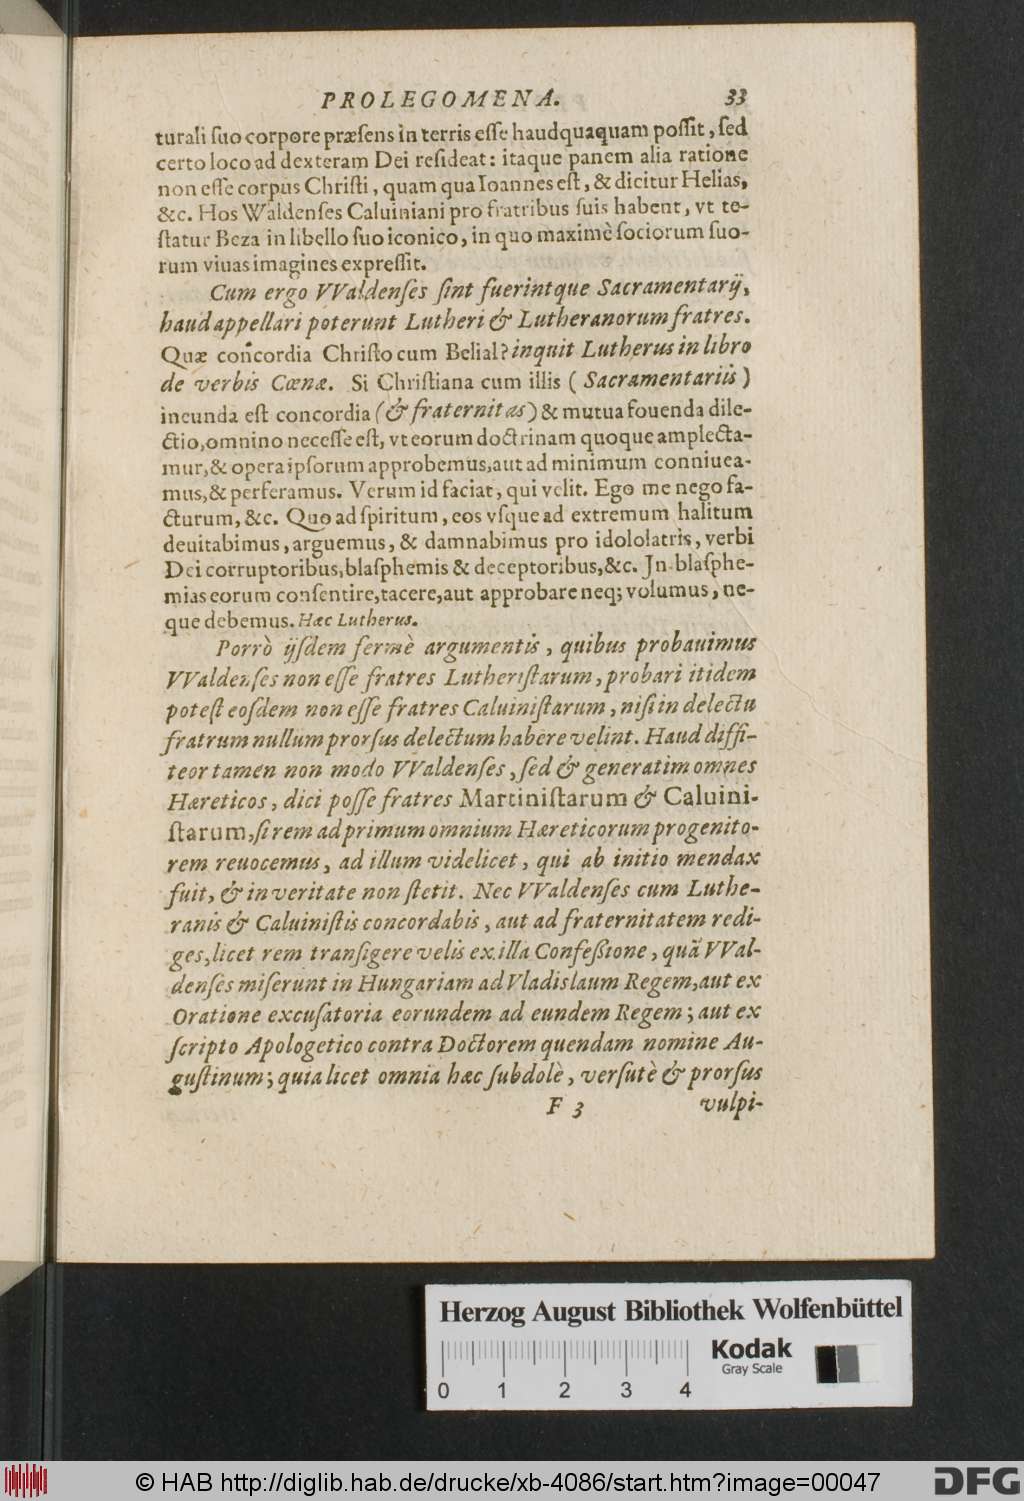 PROLEGOMENA. 33
turali ſuo corpore præſens in terris eſſe haudquaquam poſſit, ſed
certo loco ad dexteram Dei reſideat: itaque panem alia ratione
non eſſe corpus Chriſti, quam qua Ioannes eſt, & dicitur Helias,
&c. Hos Waldenſes Caluiniani pro fratribus ſuis habent, vt te-
ſtatur Beza in libello ſuo iconico, in quo maximè ſociorum ſuo-
rum viuas imagines expreſſit.
Cum ergo VValdenſes ſint fuerintque Sacramentarij,
haud appellari poterunt Lutheri & Lutheranorum fratres.
Quæ concordia Chriſto cum Belial? inquit Lutherus in libro
de verbis Cœnæ. Si Chriſtiana cum illis (Sacramentariis)
ineunda eſt concordia (& fraternitas) & mutua fouenda dile-
ctio, omnino neceſſe eſt, vt eorum doctrinam quoque amplecta-
mur, & opera ipſorum approbemus, aut ad minimum conniuea-
mus, & perferamus. Verum id faciat, qui velit. Ego me nego fa-
cturum, &c. Quo ad ſpiritum, eos vſque ad extremum halitum
deuitabimus, arguemus, & damnabimus pro idololatris, verbi
Dei corruptoribus, blaſphemis & deceptoribus, &c. Jn blaſphe-
mias eorum conſentire, tacere, aut approbare neq; volumus, ne-
que debemus. Hæc Lutherus.
Porrò ijſdem fermè argumentis, quibus probauimus
VValdenſes non eſſe fratres Lutheriſtarum, probari itidem
poteſt eoſdem non eſſe fratres Caluiniſtarum, niſi in delectu
fratrum nullum prorſus delectum habere velint. Haud diffi-
teor tamen non modo VValdenſes, ſed & generatim omnes
Hæreticos, dici poſſe fratres Martiniſtarum & Caluini-
ſtarum, ſi rem ad primum omnium Hæreticorum progenito-
rem reuocemus, ad illum videlicet, qui ab initio mendax
fuit, & in veritate non ſtetit. Nec VValdenſes cum Luthe-
ranis & Caluiniſtis concordabis, aut ad fraternitatem redi-
ges, licet rem tranſigere velis ex illa Confeßione, quã VVal-
denſes miſerunt in Hungariam ad Vladislaum Regem, aut ex
Oratione excuſatoria eorundem ad eundem Regem; aut ex
ſcripto Apologetico contra Doctorem quendam nomine Au-
guſtinum; quia licet omnia hæc ſubdolè, verſutè & prorſus
F 3 vulpi-
Herzog August Bibliothek Wolfenbüttel
Kodak
Gray Scale
0 1 2 3 4
© HAB http://diglib.hab.de/drucke/xb-4086/start.htm?image=00047
DFG